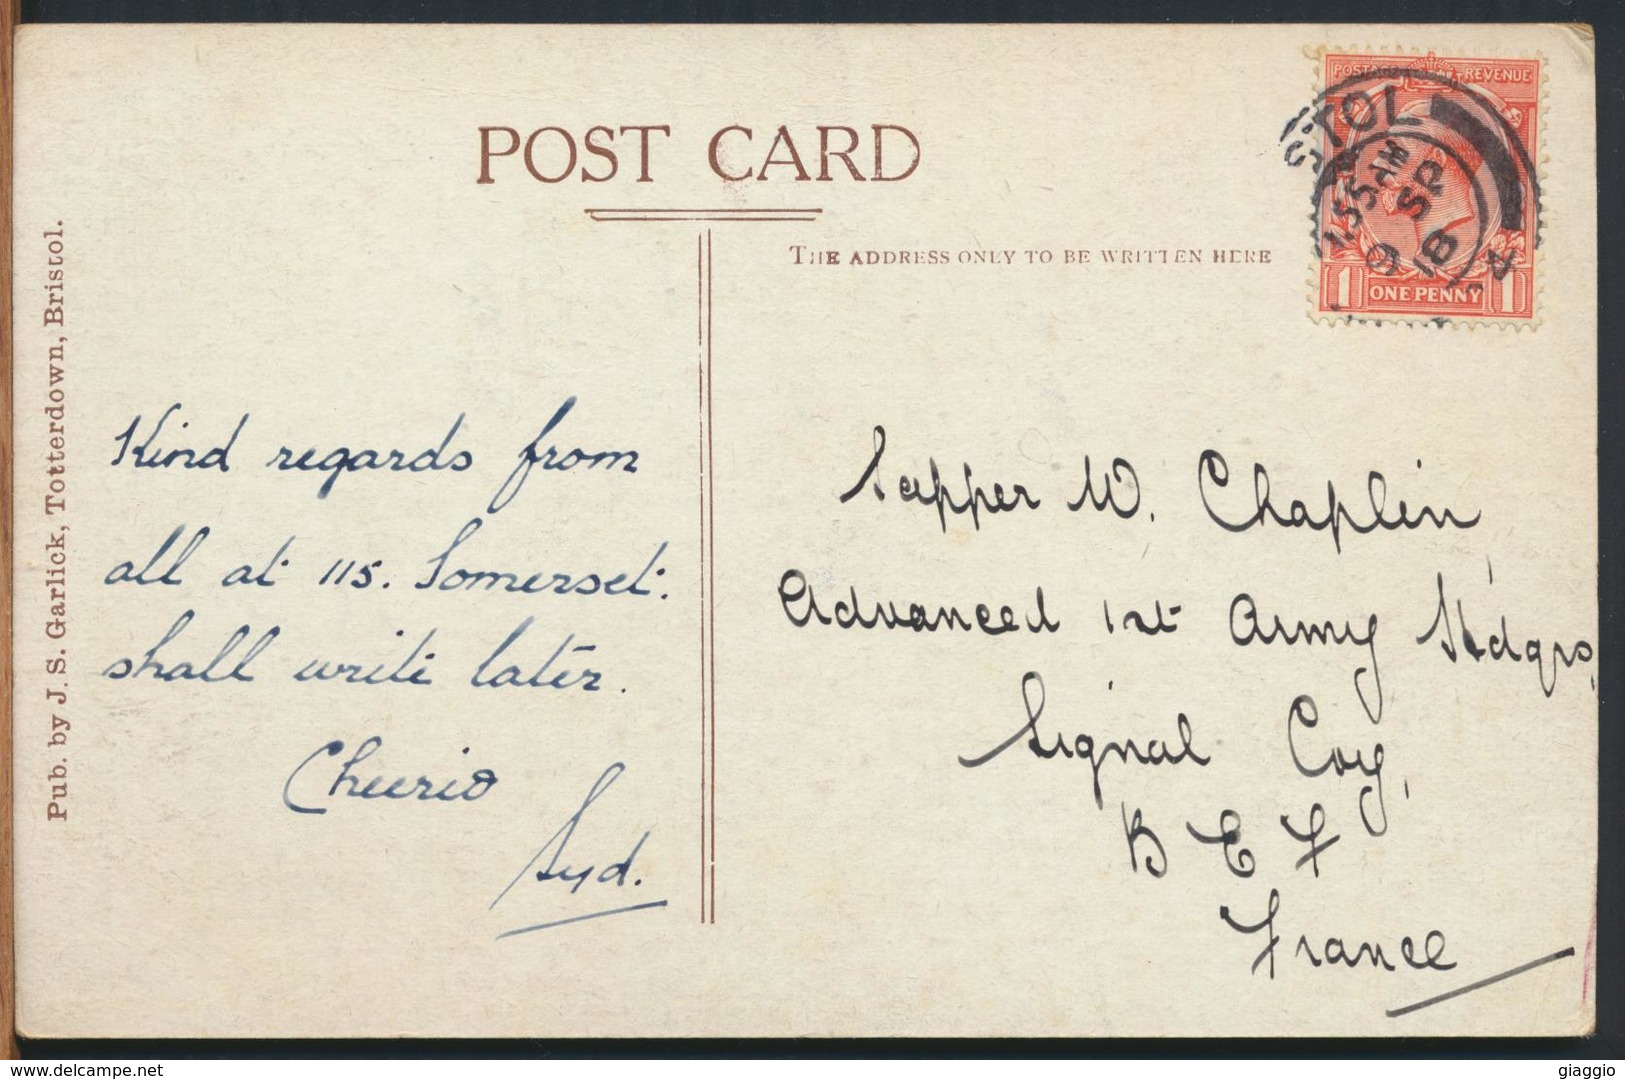 POST CARD
THE ADDRESS ONLY TO BE WRITTEN HERE
Pub. by J. S. Garlick, Totterdown, Bristol.
Kind regards from
all at 115. Somerset.
shall write later.
Cheerio
Syd.
Sapper W. Chaplin,
Advanced 1st Army Hdqrs,
Signal Coy,
B E F
France
POSTAGE REVENUE
1 ONE PENNY 1
STOL
1.55 AM
9 SP
18
delcampe.net
giaggio